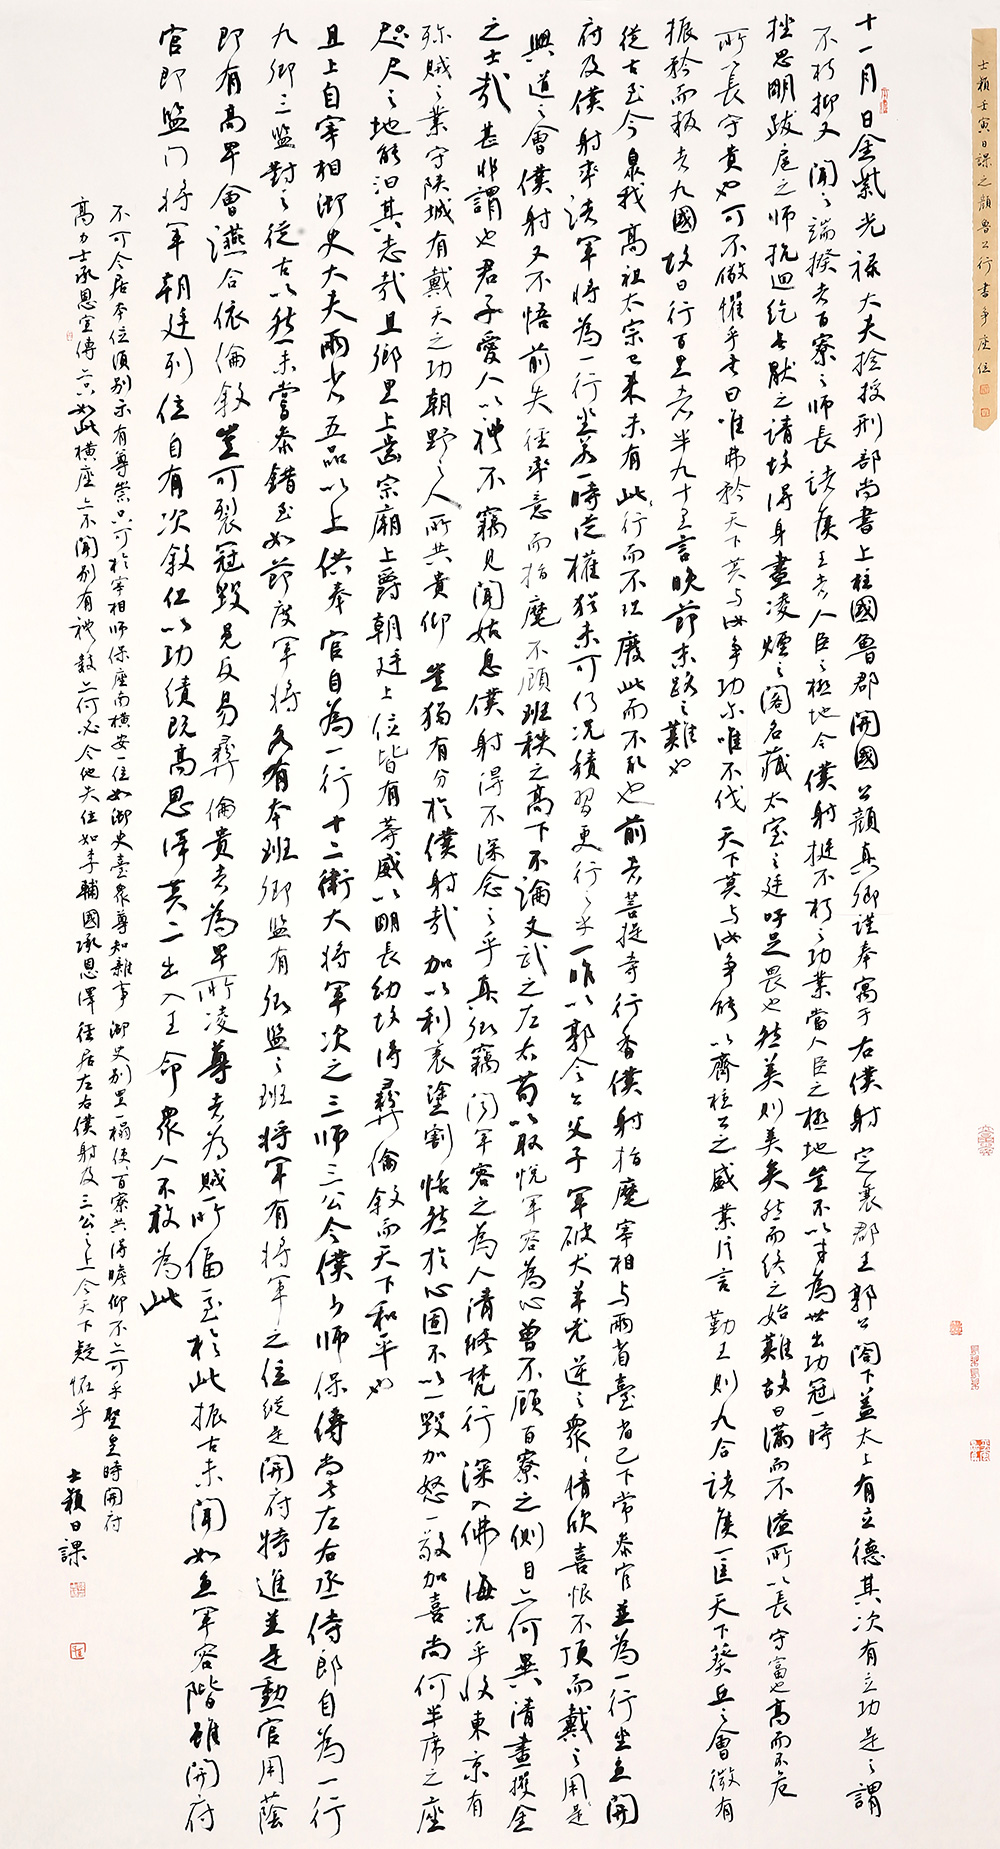 士穎壬寅日課之顏魯公行書爭座位
十一月日金紫光祿大夫檢校刑部尚書上柱國魯郡開國公顏真卿謹奉寓于右僕射定襄郡王郭公閤下蓋太上有立德其次有立功是之謂
不朽抑又聞之端揆者百寮之師長諸侯王者人臣之極地今僕射挺不朽之功業當人臣之極地豈不以才為世出功冠一時
挫思明跋扈之師抗迴紇無厭之請故得身畫凌煙之閣名藏太室之廷吁足畏也然美則美矣然而終之始難故曰滿而不溢所以長守富也高而不危
所以長守貴也可不儆懼乎書曰唯弗矜天下莫与汝爭功尔唯不伐天下莫与汝爭能以齊桓公之盛業片言勤王則九合諸侯一匡天下葵丘之會微有
振矜而叛者九國故曰行百里者半九十里言晚節末路之難也
從古至今泉我高祖太宗已來未有此行而不理廢此而不亂也前者菩提寺行香僕射指麾宰相与兩省臺省已下常參官並為一行坐魚開
府及僕射率諸軍將為一行坐若一時從權猶未可仍況積習更行之乎一昨以郭令公父子軍破犬羊兇逆之眾眾情欣喜恨不頂而戴之用是
興道之會僕射又不悟前失徑率意而指麾不顧班秩之高下不論文武之左右苟以取悅軍容為心曾不顧百寮之側目亦何異清晝攫金
之士哉甚非謂也君子愛人以禮不竊見聞姑息僕射得不深念之乎真卿竊聞軍容之為人清修梵行深入佛海況乎收東京有
殄賊之業守陝城有戴天之功朝野之人所共貴仰豈獨有分於僕射哉加以利衰塗割恬然於心固不以一毀加怒一敬加喜尚何半席之座
咫尺之地能汩其志哉且鄉里上齒宗廟上爵朝廷上位皆有等威以明長幼故得彝倫敘而天下和平也
且上自宰相御史大夫兩省五品以上供奉官自為一行十二衛大將軍次之三師三公令僕少師保傅尚書左右丞侍郎自為一行
九卿三監對之從古以然未嘗參錯至如節度軍將各有本班卿監有卿監之班將軍有將軍之位縱是開府特進並是勳官用蔭
即有高卑會讌合依倫敘豈可裂冠毀冕反易彝倫貴者為卑所凌尊者為賊所偪至於此振古未聞如魚軍容階雖開府
官即監門將軍朝廷列位自有次敘但以功績既高恩澤莫二出入王命眾人不敢為此
不可令居本位須別示有尊崇只可於宰相師保座南橫安一位如御史臺眾尊知雜事御史別置一榻使百寮共得瞻仰不亦可乎聖皇時開府
高力士承恩宣傳亦只如此橫座亦不聞別有禮數亦何必令他失位如李輔國承恩澤徑居左右僕射及三公之上令天下疑怪乎
士穎日課